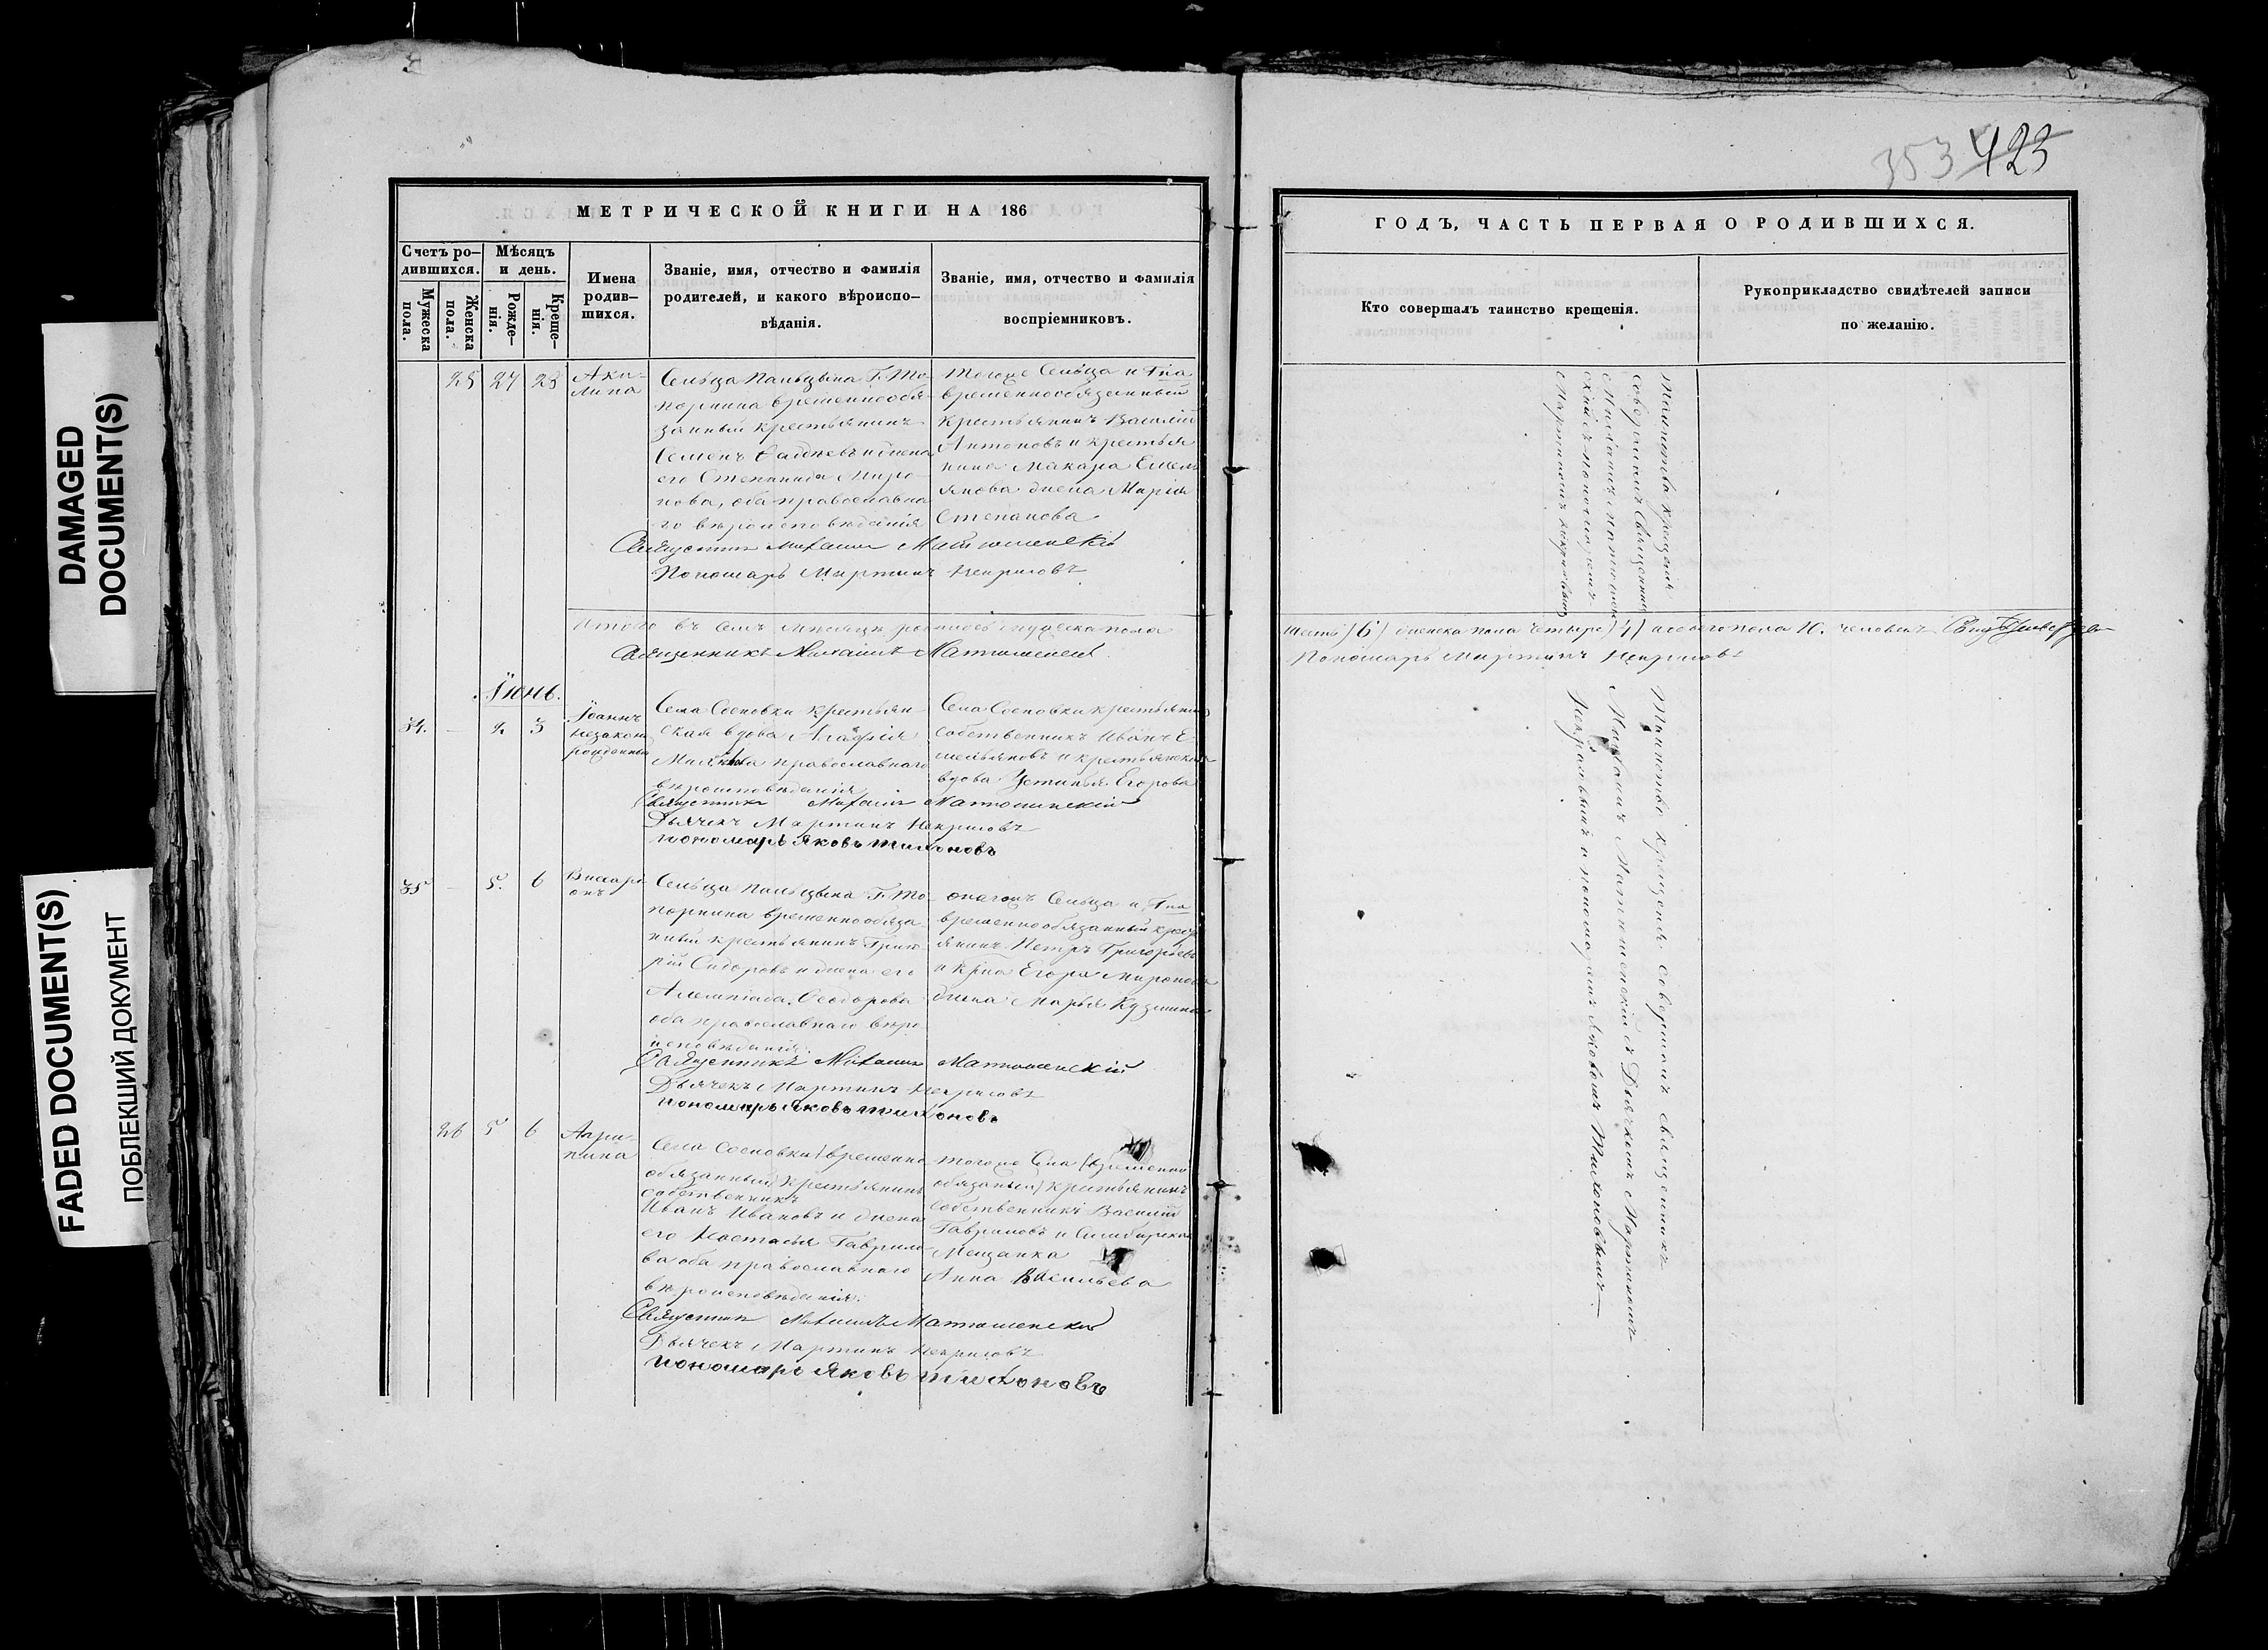 DAMAGED
DOCUMENT(S)
FADED DOCUMENT(S)
ПОБЛЕКЩИЙ ДОКУМЕНТ
353 423
МЕТРИЧЕСКОЙ КНИГИ НА 186
Счетъ ро-
дившихся.
Мужеска
пола.
Женска
пола.
Мѣсяцъ
и день.
Рожде-
нія.
Креще-
нія.
Имена
родив-
шихся.
Званіе, имя, отчество и фамилія
родителей, и какого вѣроиспо-
вѣданія.
Званіе, имя, отчество и фамилія
воспріемниковъ.
25 27 28
Аки-
лина
Сельца Пальцына Г. То-
порнина временнообя-
занный крестьянинъ
Семенъ и жена
его Степанида Миро-
нова, оба православна
го вѣроисповѣданія
тогоже Сельца и Г-на
временнообязанный
крестьянинъ Василій
Антоновъ и крестья
нина Макара Емель
янова жена Марья
Степанова
Священникъ Михаилъ Матюшенскій
Пономарь Мартинъ Некрасовъ
Итого въ семъ мѣсяцѣ родилось мужеска пола
Священникъ Михаилъ Матюшенскій
Іюнь.
34. - 2 3
Іоаннъ
незакон
рожденный
Села Сосновки крестьян-
ская вдова Агафія
православнаго
вѣроисповѣданія
Села Сосновки крестьянинъ
собственникъ Иванъ Е
мельяновъ и крестьянская
вдова Устинья Егорова
Священникъ Михаилъ Матюшинскій
Дьячекъ Мартинъ Некрасовъ
пономарь Яковъ Тихоновъ
35 - 5. 6
Виссари-
онъ
Сельца Пальцына Г. То-
порнина временнообяза
нный крестьянинъ Григо
рій Сидоровъ и жена его
Алемпіада Ѳеодорова
оба православнаго вѣро
исповѣданія.
онагожъ Сельца и Г-на
временнообязанный крест
янинъ Петръ Григорьевъ
и Кр-на Егора Миронова
жена Марья Кузмина
Священникъ Михаилъ Матюшенскій
Дьячекъ Мартинъ Некрасовъ
пономарь Яковъ Тихоновъ
26 5 6
Агри-
пина
Села Сосновки (временно
обязанный) крестьянинъ
собственникъ
Иванъ Ивановъ и жена
его Настасья Гаврило
ва оба православнаго
вѣроисповѣданія.
тогоже Села (временно
обязаный) крестьянинъ
собственникъ Василій
Гавриловъ и Симбирская
Мещанка
Анна Васильева
Священникъ Михаилъ Матюшенскій
Дьячекъ Мартинъ Некрасовъ
пономарь Яковъ Тихоновъ
ГОДЪ, ЧАСТЬ ПЕРВАЯ О РОДИВШИХСЯ.
Кто совершалъ таинство крещенія.
Рукоприкладство свидѣтелей записи
по желанію.
Таинство крещенія
совершилъ Священникъ
Михаилъ Матюшен
скій съ пономаремъ
Мартиномъ Некрасовымъ
шесть) 6) женска пола четыре) 4) обоего пола 10. человекъ
Пономарь Мартинъ Некрасовъ
Таинство крещенія совершилъ священникъ
Михаилъ Матюшенскій съ Дьячкомъ Мартиномъ
Некрасовымъ и пономаремъ Яковомъ Тихоновымъ